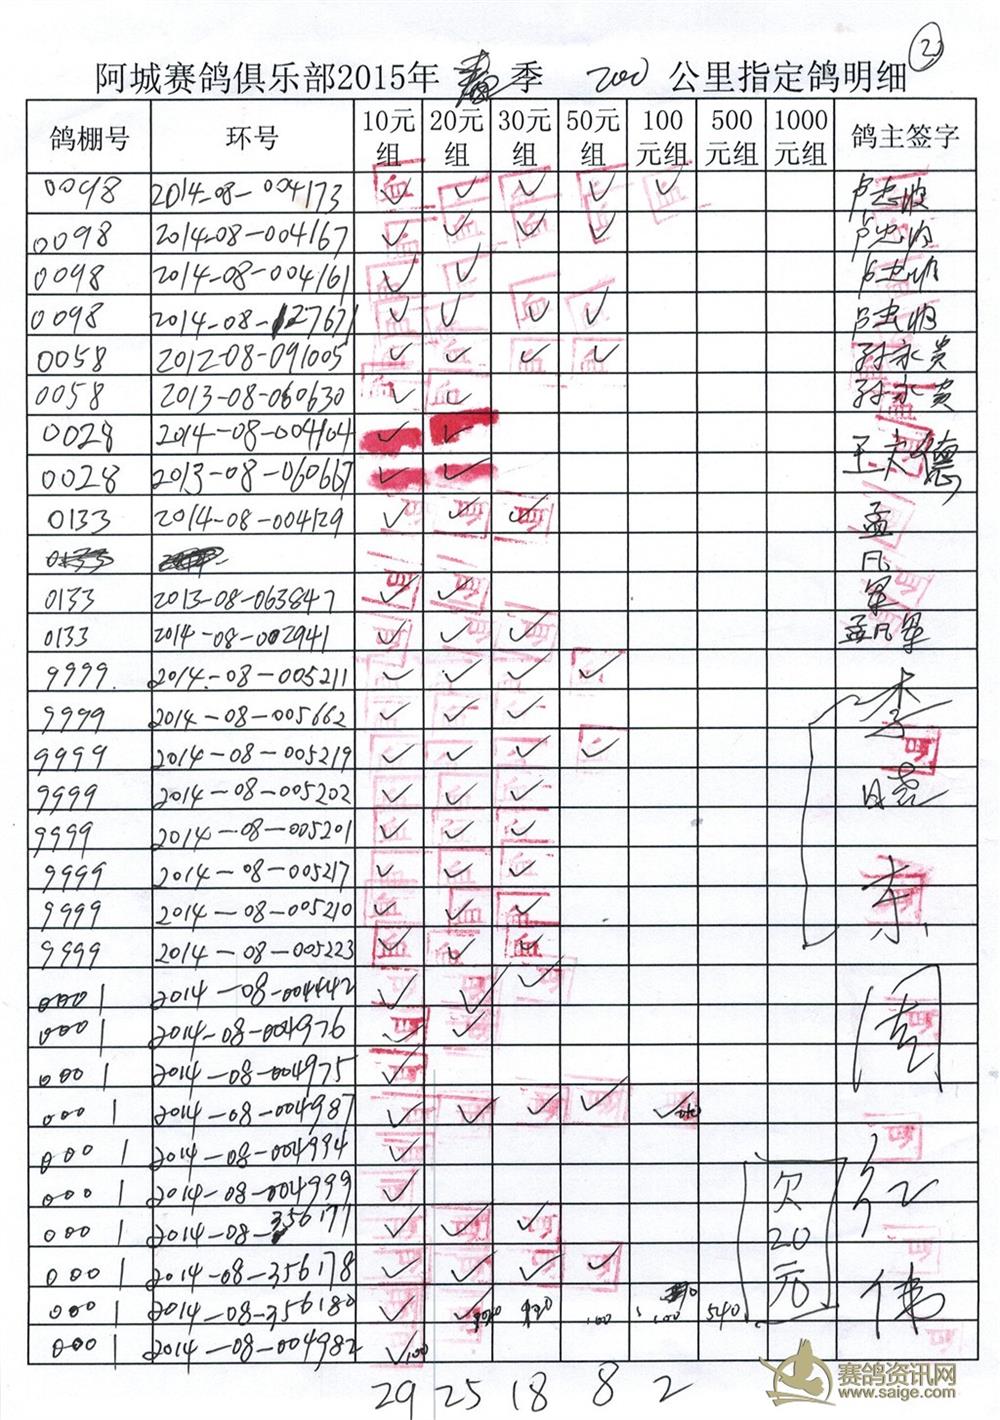 2
阿城赛鸽俱乐部2015年 春季 200 公里指定鸽明细
鸽棚号 环号 10元组 20元组 30元组 50元组 100元组 500元组 1000元组 鸽主签字
0098 2014-08-004173 ✓ ✓ ✓ ✓ ✓
0098 2014-08-004167 ✓ ✓ ✓ ✓
0098 2014-08-004161 ✓ ✓
0098 2014-08-127671 ✓ ✓ ✓ ✓
0058 2012-08-091005 ✓ ✓ ✓ ✓ 孙永贵
0058 2013-08-060630 ✓ ✓ 孙永贵
0028 2014-08-004104 ✓ ✓
0028 2013-08-060667 ✓ ✓
0133 2014-08-004129 ✓ ✓ ✓ 孟
凡
0133 2013-08-063847 ✓ ✓ 军
0133 2014-08-002941 ✓ ✓ ✓ 孟凡军
9999 2014-08-005211 ✓ ✓ ✓ ✓ 李
9999 2014-08-005662 ✓ ✓ ✓
9999 2014-08-005219 ✓ ✓ ✓ ✓
9999 2014-08-005202 ✓ ✓ ✓ 晓
9999 2014-08-005201 ✓ ✓ ✓
9999 2014-08-005217 ✓ ✓ ✓
9999 2014-08-005210 ✓ ✓ ✓ 东
9999 2014-08-005223 ✓ ✓ ✓
0001 2014-08-004442 ✓ ✓ ✓
0001 2014-08-004976 ✓ ✓ 周
0001 2014-08-004975 ✓
0001 2014-08-004987 ✓ ✓ ✓ ✓ ✓
0001 2014-08-004994 ✓
0001 2014-08-004999 ✓ 红
0001 2014-08-356177 ✓ ✓ ✓
0001 2014-08-356178 ✓ ✓ ✓ ✓
欠20元
0001 2014-08-356180 ✓ ✓ 100 100 540 伟
0001 2014-08-004982 ✓ 100
29 25 18 8 2
赛鸽资讯网
www.saige.com